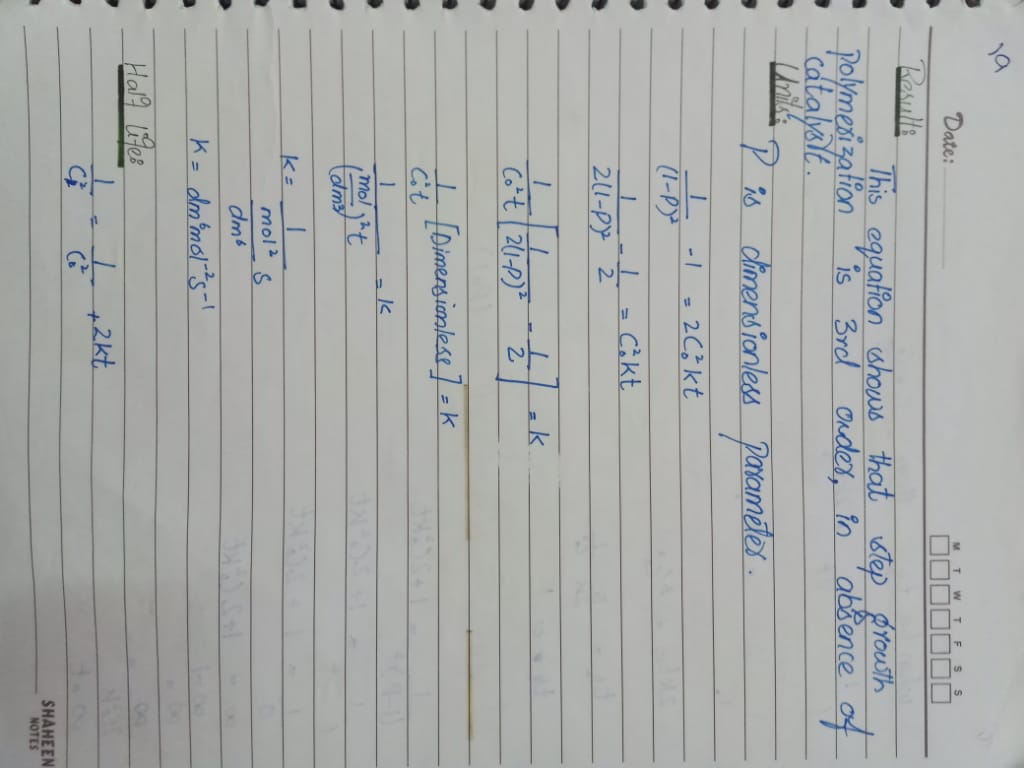 19
Date:
M T W T F S S
Result:
This equation shows that step growth
polymerization is 3rd order, in absence of
catalyst.
Units:
P is dimensionless parameter.
1/(1-P)² - 1 = 2C₀²kt
1/2(1-P)² - 1/2 = C₀²kt
1/C₀²t [1/2(1-P)² - 1/2] = k
1/C₀²t [Dimensionless] = k
1/(mol/dm³)²t = k
k = 1/(mol²/dm⁶ s)
k = dm⁶mol⁻²s⁻¹
Half life:
1/C² = 1/C₀² + 2kt
SHAHEEN
NOTES